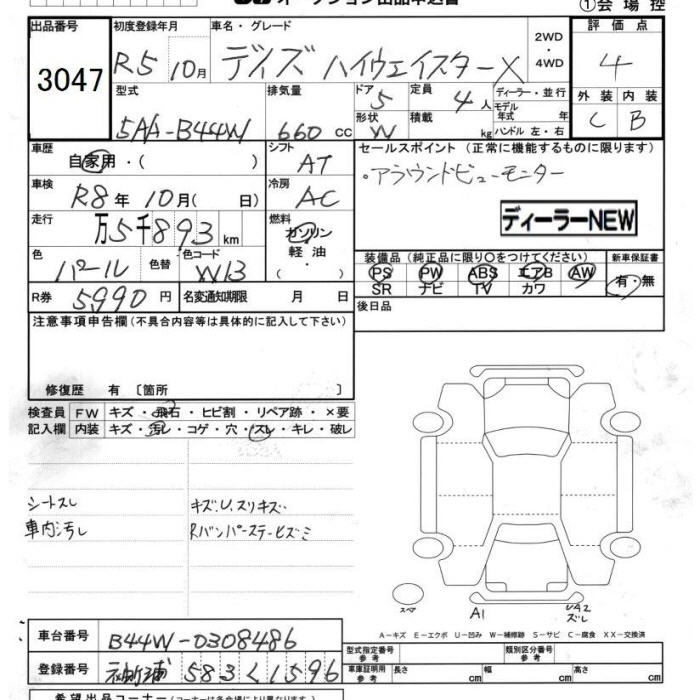 オークション出品申込書 ①会場控
出品番号 初度登録年月 車名・グレード 2WD ・ 4WD 評価点
3047 R5 10月 デイズ ハイウェイスターX 4
型式 排気量 ドア 5 定員 4人 ディーラー・並行 外装 内装
5AA-B44W 660 cc 形状 W 積載 kg モデル年式 年 ハンドル 左・右 C B
車歴 自家用・( ) シフト AT セールスポイント (正常に機能するものに限ります)
車検 R8年10月( 日) 冷房 AC ・アラウンドビューモニター
走行 万5千893km 燃料 ガソリン・軽油・( ) ディーラーNEW
色 パール 色替 色コード W13 装備品 (純正品に限り〇をつけてください) 新車保証書
PS PW ABS エアB AW 有・無
SR ナビ TV カワ
R券 5,990円 名変通知期限 月 日 後日品
注意事項申告欄 (不具合内容等は具体的に記入して下さい)
修復歴 有 〔箇所 〕
検査員 FW キズ・飛石・ヒビ割・リペア跡・×要
記入欄 内装 キズ・汚レ・コゲ・穴・スレ・キレ・破レ
シートスレ キズ、U、スリキズ
車内汚レ Rバンパーステーヒズミ
スペア A1 UA2 ズレ
A-キズ E-エクボ U-凹み W-補修跡 S-サビ C-腐食 XX-交換済
車台番号 B44W-0308486 型式指定番号 参考 類別区分番号 参考
登録番号 583 く 1596 車庫証明用 参考 長さ cm 幅 cm 高さ cm
希望出品コーナー (コーナーは各会場により異なります)